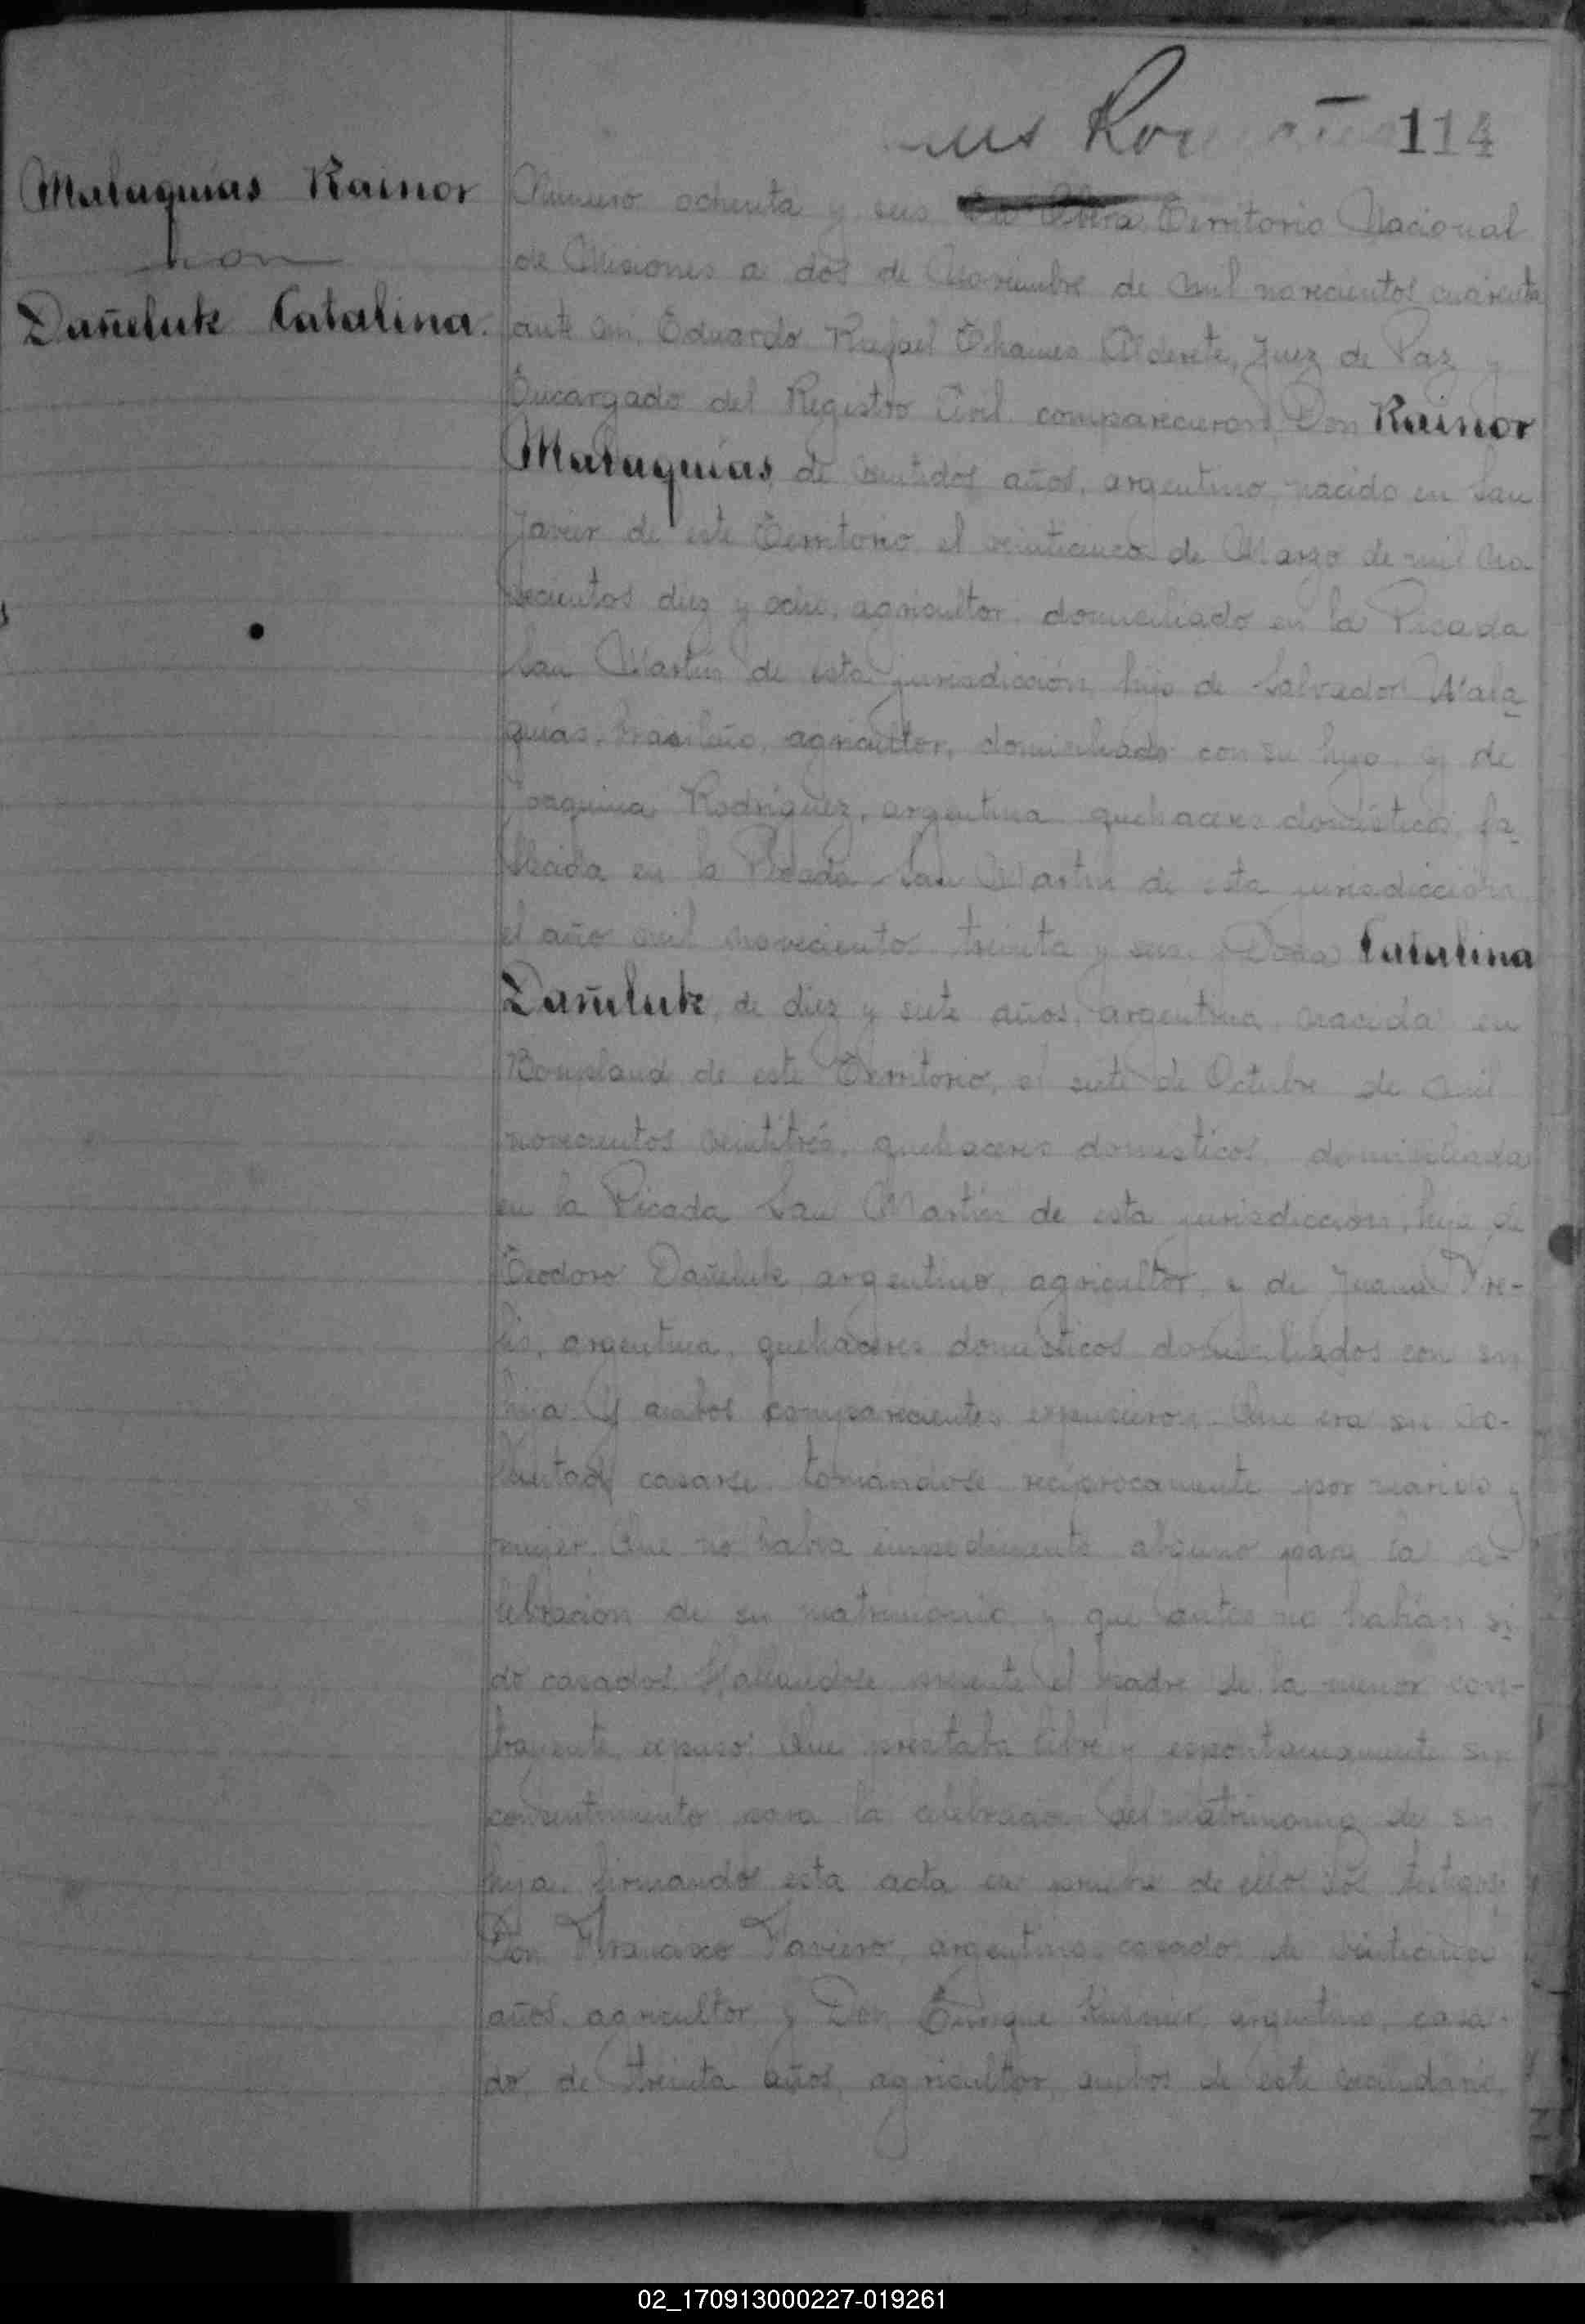 114
Malaquías Rainor
con
Dañeluk Catalina.
Número ochenta y seis Territorio Nacional
de Misiones a dos de Noviembre de mil novecientos cuarenta
ante mi, Eduardo Rafael Alderete, Juez de Paz y
Encargado del Registro Civil comparecieron Don Rainor
Malaquías, de veintidos años, argentino, nacido en San
Javier de este Territorio el veinticinco de Marzo de mil no
vecientos diez y ocho, agricultor, domiciliado en la Picada
San Martín de esta jurisdicción, hijo de Salvador Mala
quías, brasileño, agricultor, domiciliado con su hijo y de
Joaquina Rodríguez, argentina quehaceres domésticos, fa
llecida en la Picada San Martín de esta jurisdicción
el año mil novecientos treinta y seis y Doña Catalina
Dañeluk, de diez y siete años, argentina, nacida en
Bonpland de este Territorio, el siete de Octubre de mil
novecientos veintitrés, quehaceres domésticos, domiciliada
en la Picada San Martín de esta jurisdicción, hija de
Teodoro Dañeluk argentino, agricultor y de Juana
argentina, quehaceres domésticos domiciliados con su
hija. Y ambos comparecientes expusieron: Que era su vo-
luntad casarse tomándose recíprocamente por marido y
mujer. Que no había impedimento alguno para la ce-
lebración de su matrimonio y que antes no habían si
do casados. Hallandose presente el padre de la menor con-
trayente expuso: Que prestaba libre y espontaneamente su
consentimiento para la celebración del matrimonio de su
hija, firmando esta acta en prueba de ello los testigos
Don Francisco Taviero, argentino, casado, de
años, agricultor y Don Enrique argentino, casa-
do, de treinta años, agricultor, ambos de este vecindario.
02_170913000227-019261